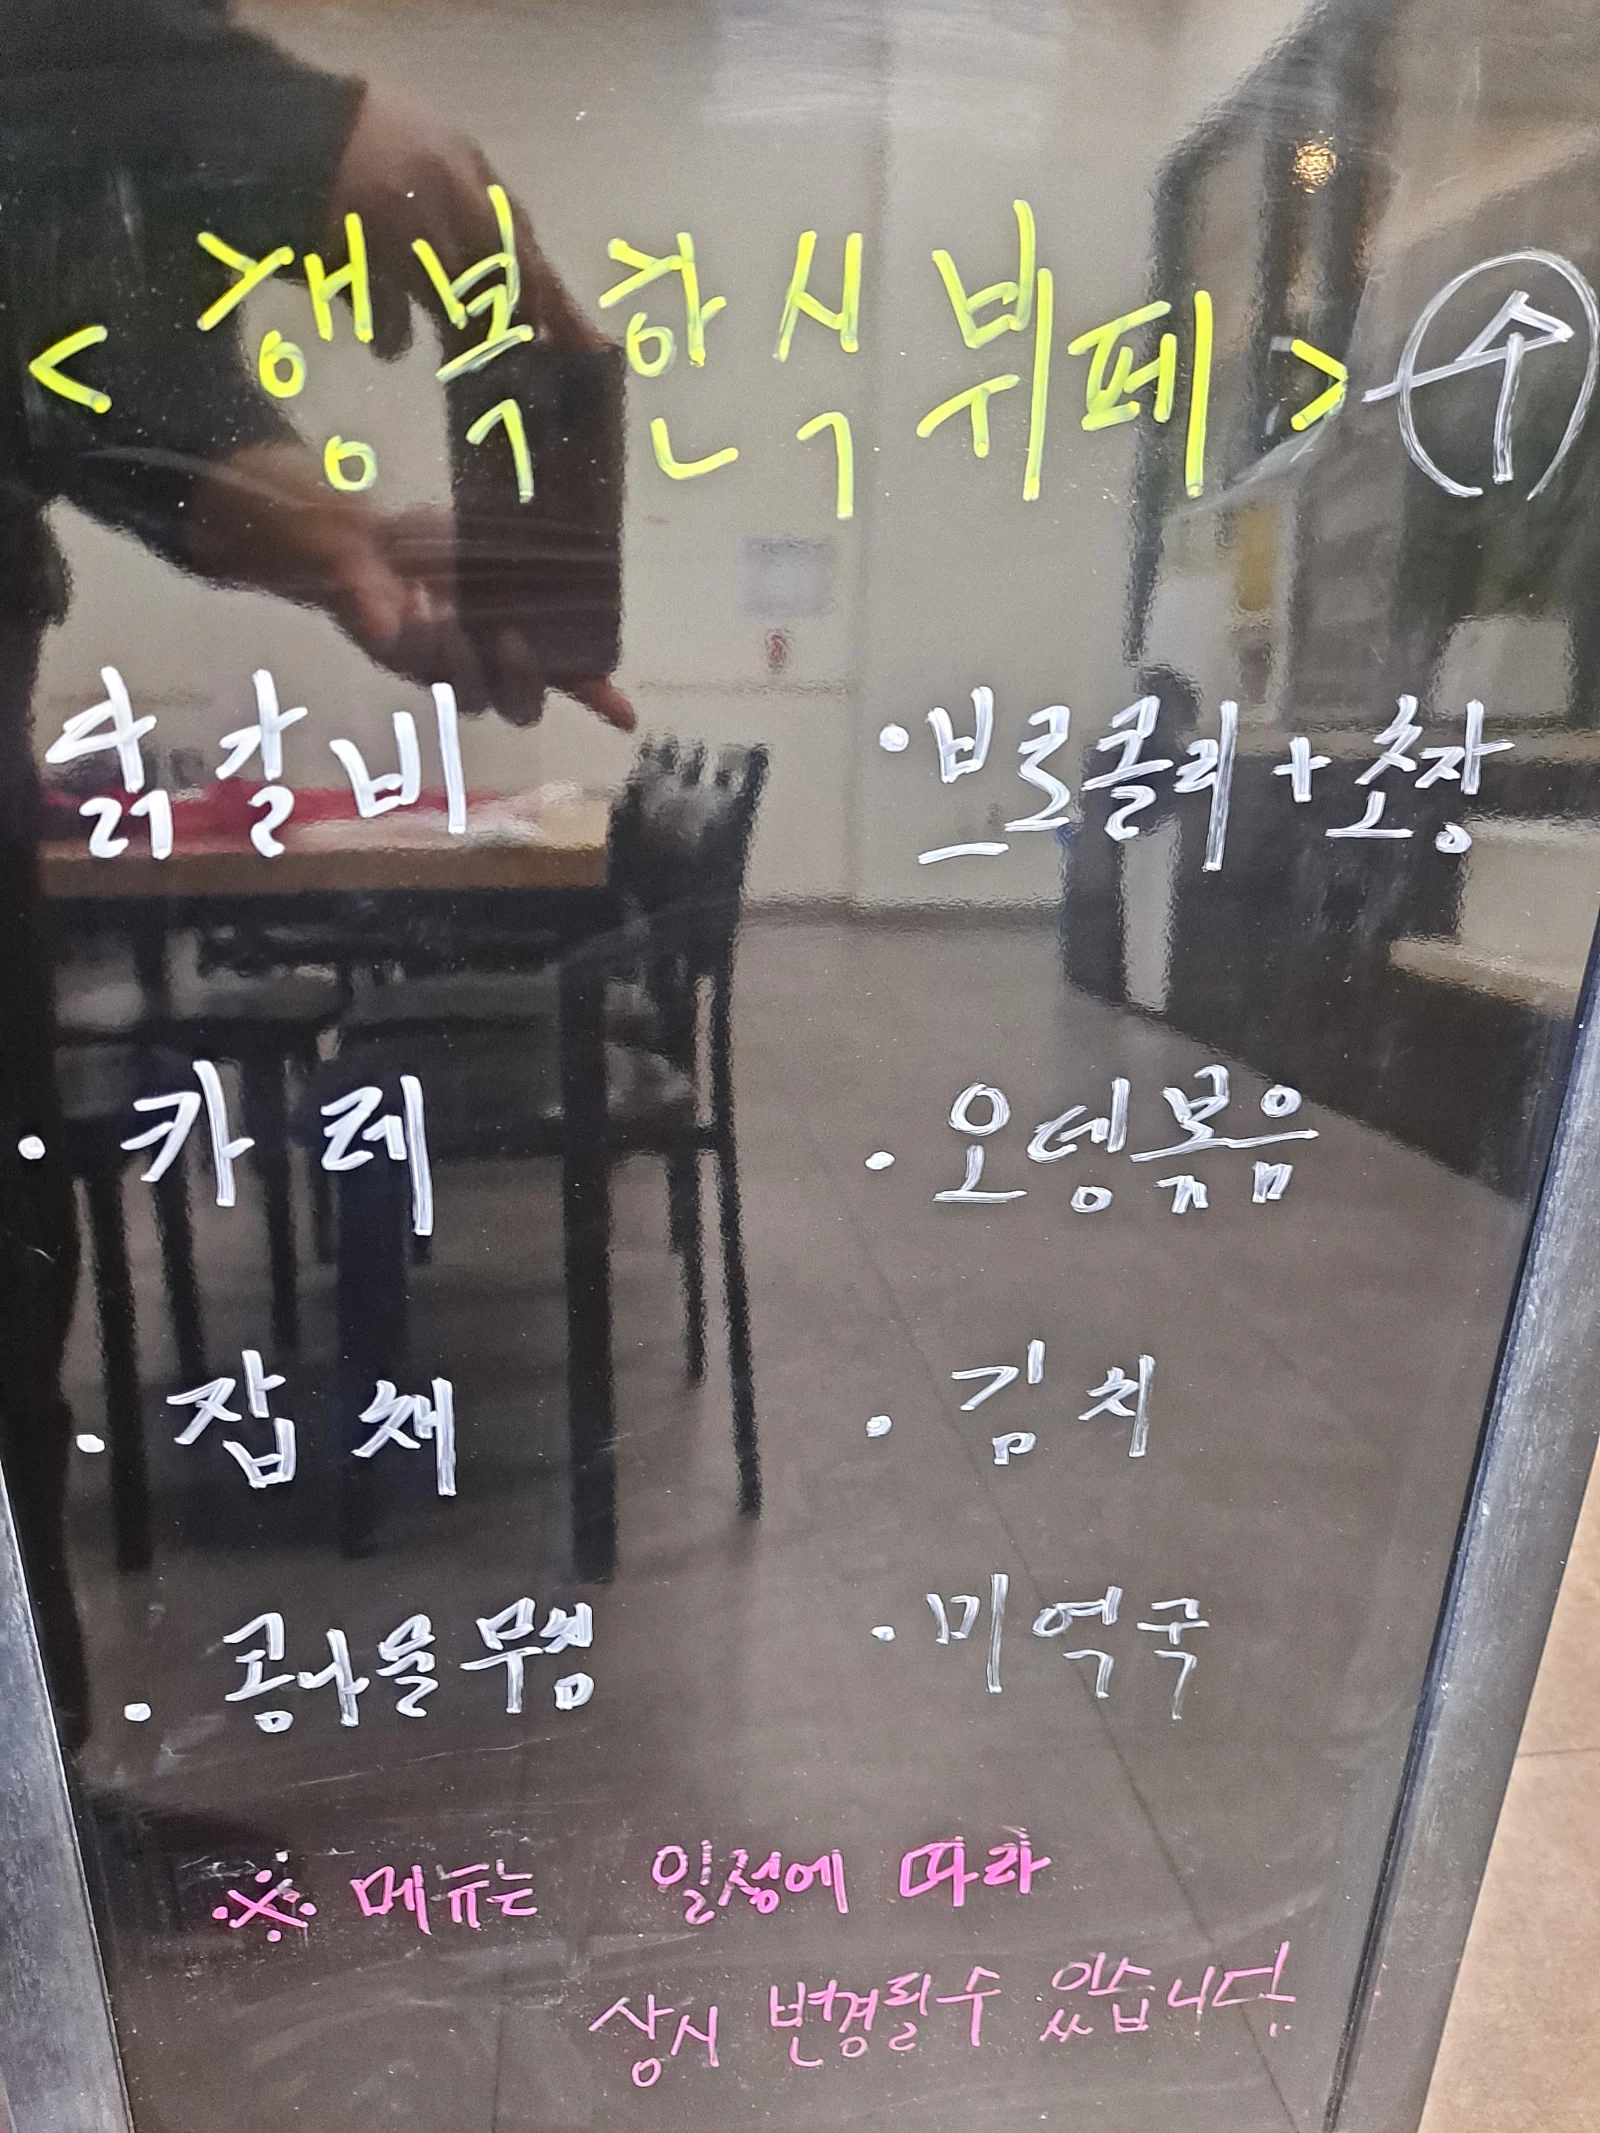 <행복한식뷔페> 수
닭갈비
· 브로콜리+초장
· 카레
· 오뎅볶음
· 잡채
· 김치
· 콩나물무침
· 미역국
※ 메뉴는 일정에 따라
상시 변경될수 있습니다!